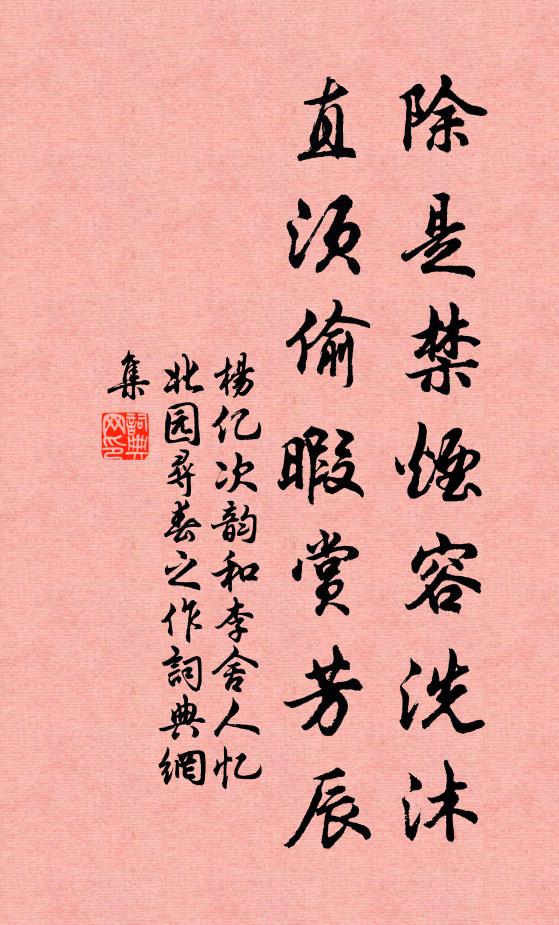 除是禁煙容洗沐
直须偷暇赏芳辰
楊亿次韵和李舍人忆
北园尋春之作詞典網
集
詞典
网印